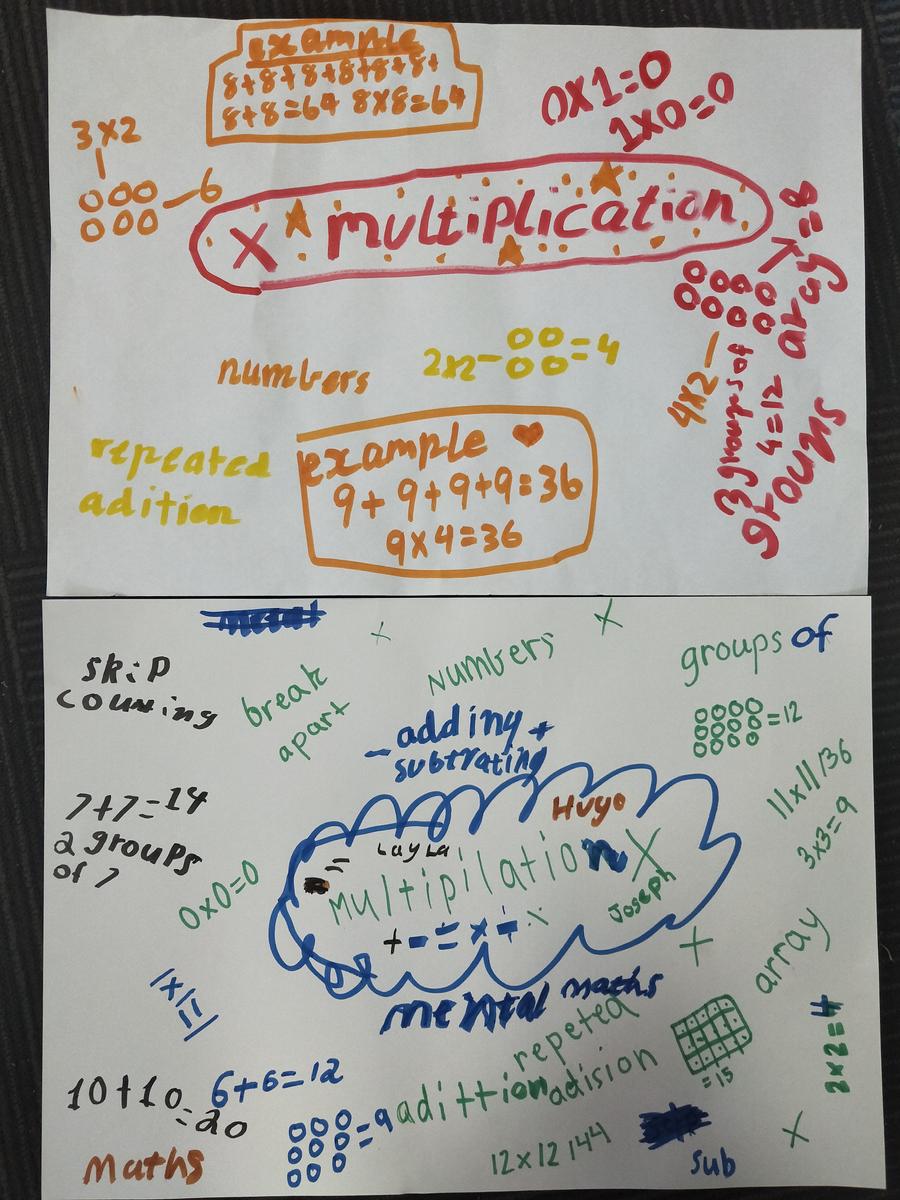 example
8+8+8+8+8+8+
8+8=64 8x8=64
0x1=0
1x0=0
3x2
6
x multiplication
array=8
4x2
3 groups of
4=12
groups
numbers
2x2-
=4
repeated
adition
example
9+9+9+9=36
9x4=36
skip
counting
break
apart
numbers
groups of
=12
- adding +
subtrating
7+7=14
2 groups
of 7
0x0=0
Hugo
Layla
multipilation x
Joseph
+ - = x ÷
11x11136
3x3=9
array
2x2=4
1x1=1
mental maths
repeted
adittion adision
=15
10+10=20
6+6=12
=9
12x12 144
maths
sub